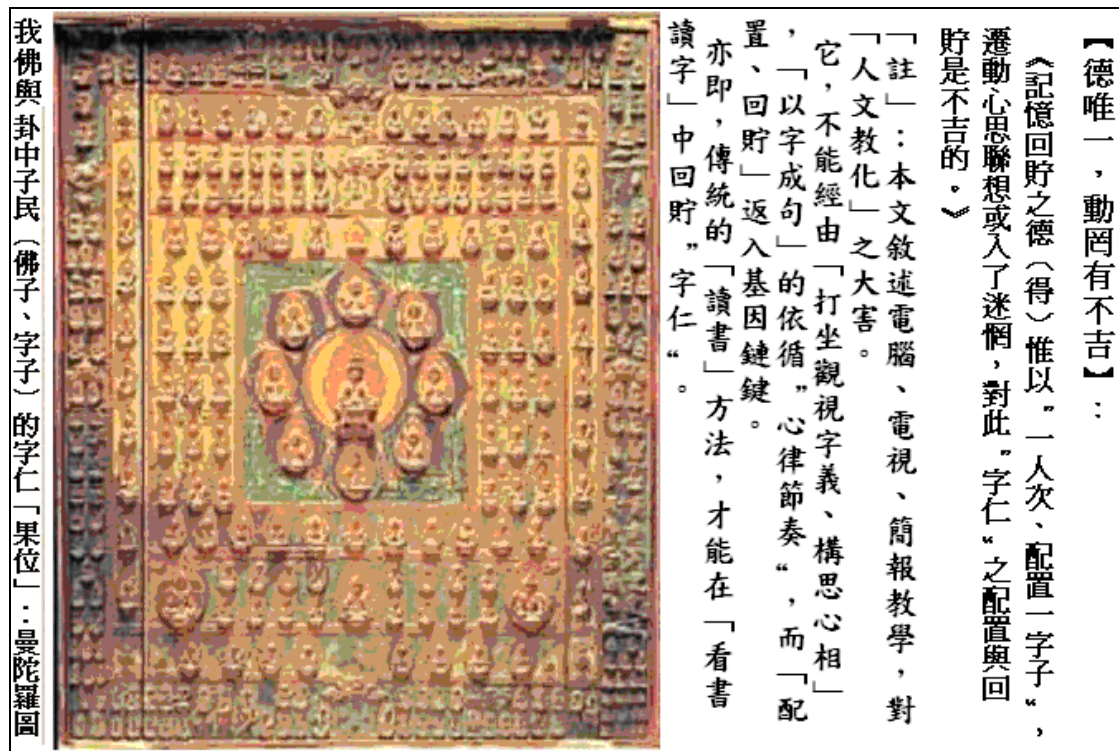 【德唯一，動罔有不吉】：
《記憶回貯之德（得）惟以〞一人次、配置一字子〝，
遷動心思聯想或入了迷惘，對此〞字仁〝之配置與回
貯是不吉的。》
「註」：本文敘述電腦、電視、簡報教學，對
「人文教化」之大害。
它，不能經由「打坐觀視字義、構思心相」
，「以字成句」的依循〞心律節奏〝，而「配
置、回貯」返入基因鏈鍵。
亦即，傳統的「讀書」方法，才能在「看書
讀字」中回貯〞字仁〝。
我佛與卦中子民（佛子、字子）的字仁「果位」：曼陀羅圖